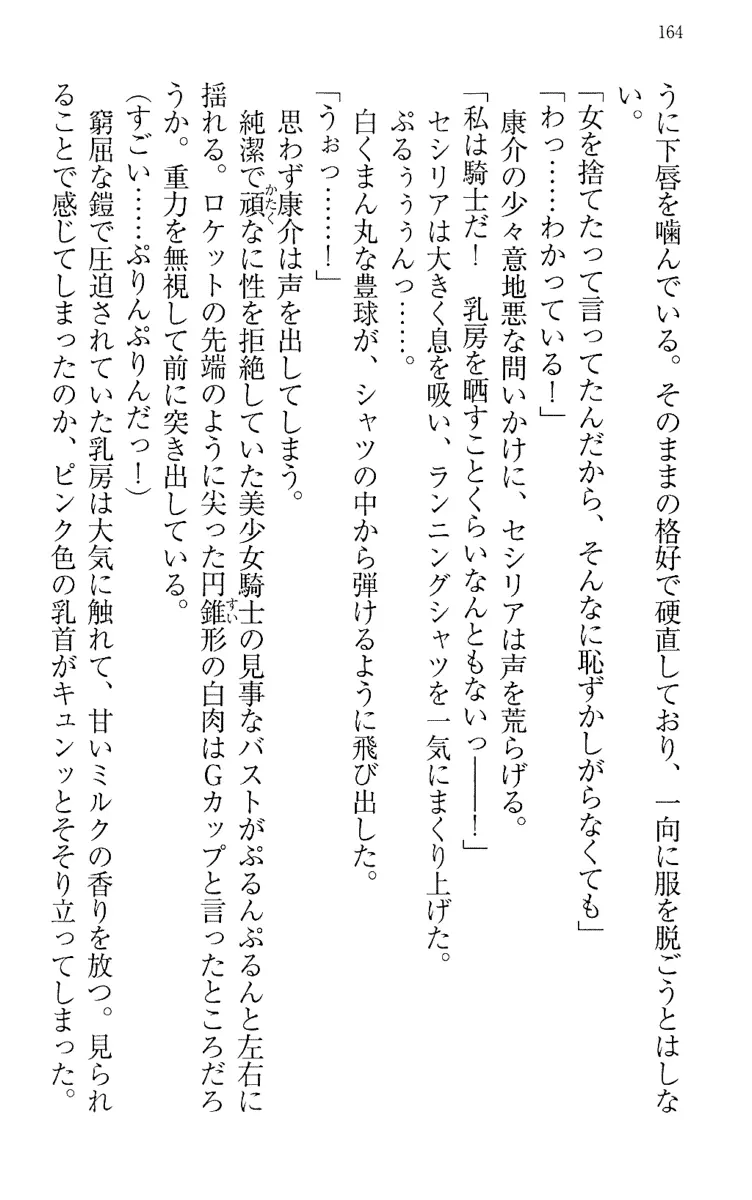 164
うに下唇を噛んでいる。そのままの格好で硬直しており、一向に服を脱ごうとはしな
い。
「女を捨てたって言ってたんだから、そんなに恥ずかしがらなくても」
「わっ……わかっている！」
康介の少々意地悪な問いかけに、セシリアは声を荒らげる。
「私は騎士だ！　乳房を晒すことくらいなんともないっ――！」
セシリアは大きく息を吸い、ランニングシャツを一気にまくり上げた。
ぷるぅぅぅんっ……。
白くまん丸な豊球が、シャツの中から弾けるように飛び出した。
「うぉっ……！」
思わず康介は声を出してしまう。
純潔で頑なに性を拒絶していた美少女騎士の見事なバストがぷるんぷるんと左右に
かたく
揺れる。ロケットの先端のように尖った円錐形の白肉はGカップと言ったところだろ
すい
うか。重力を無視して前に突き出している。
（すごい……ぷりんぷりんだっ！）
窮屈な鎧で圧迫されていた乳房は大気に触れて、甘いミルクの香りを放つ。見られ
ることで感じてしまったのか、ピンク色の乳首がキュンッとそそり立ってしまった。